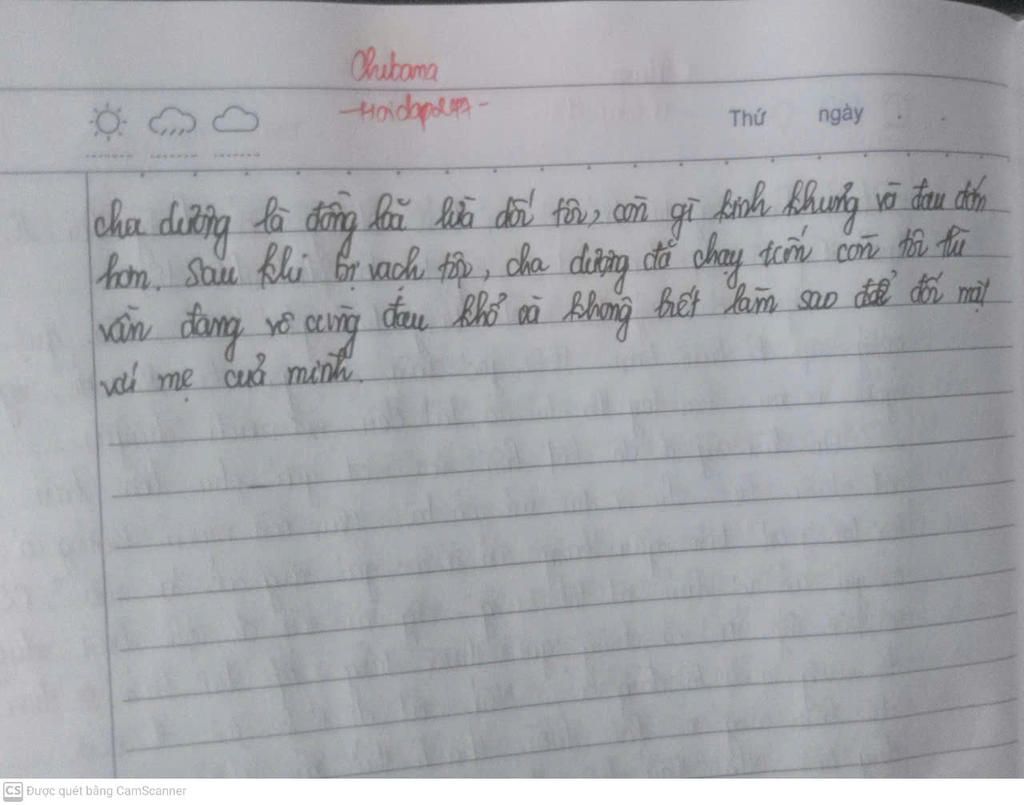 Chubama
-Hoidap247-
Thứ ngày
cha dượng là đồng lõa lừa dối tôi, còn gì kinh khủng và đau đớn
hơn. Sau khi bị vạch tội, cha dượng đã chạy trốn còn tôi thì
vẫn đang vô cùng đau khổ và không biết làm sao để đối mặt
với mẹ của mình.
CS Được quét bằng CamScanner